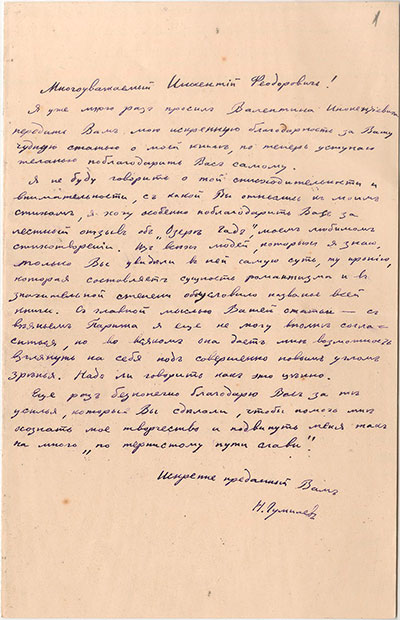 1
Многоуважаемый Инокентій Феодоровичъ!
Я уже много разъ просилъ Валентина Инокентіевича
передать Вамъ мою искреннюю благодарность за Вашу
чудную статью о моей книгѣ, но теперь уступаю
желанію поблагодарить Васъ самому.
Я не буду говорить о той снисходительности и
внимательности, съ какой Вы отнеслись къ моимъ
стихамъ, я хочу особенно поблагодарить Васъ за
лестный отзывъ объ „Озерѣ Чадъ“, моемъ любимомъ
стихотвореніи. Изъ всѣхъ людей, которыхъ я знаю,
только Вы увидали въ ней самую суть, ту иронію,
которая составляетъ сущность романтизма и въ
значительной степени обусловило названье всей
книги. Съ главной мыслью Вашей статьи — съ
вліяньемъ Парижа я еще не могу вполнѣ согла-
ситься, но во всякомъ она даетъ мнѣ возможность
взглянуть на себя подъ совершенно новымъ угломъ
зрѣнья. Надо ли говорить какъ это цѣнно.
Еще разъ безконечно благодарю Васъ за тѣ
усилья, которыя Вы сдѣлали, чтобы помочь мнѣ
осознать мое творчество и подвинуть меня такъ
на много „по тернистому пути славы“.
Искренне преданный Вамъ
Н. Гумилевъ